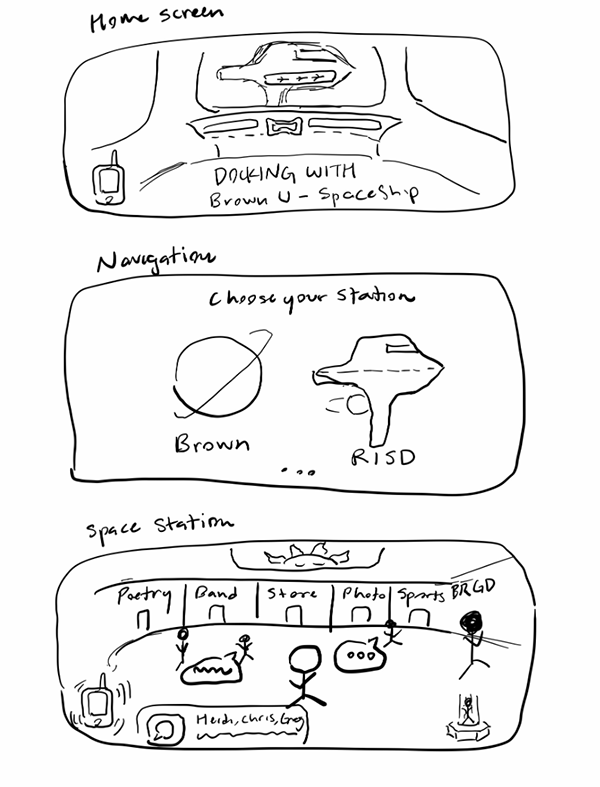 Home Screen
DOCKING WITH
Brown U - Spaceship
Navigation
Choose your Station
Brown
RISD
...
Space Station
Poetry Band Store Photo Sports BRGD
Heidi, Chris, Greg